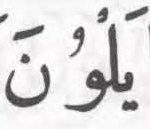 يَلْوُ نَ